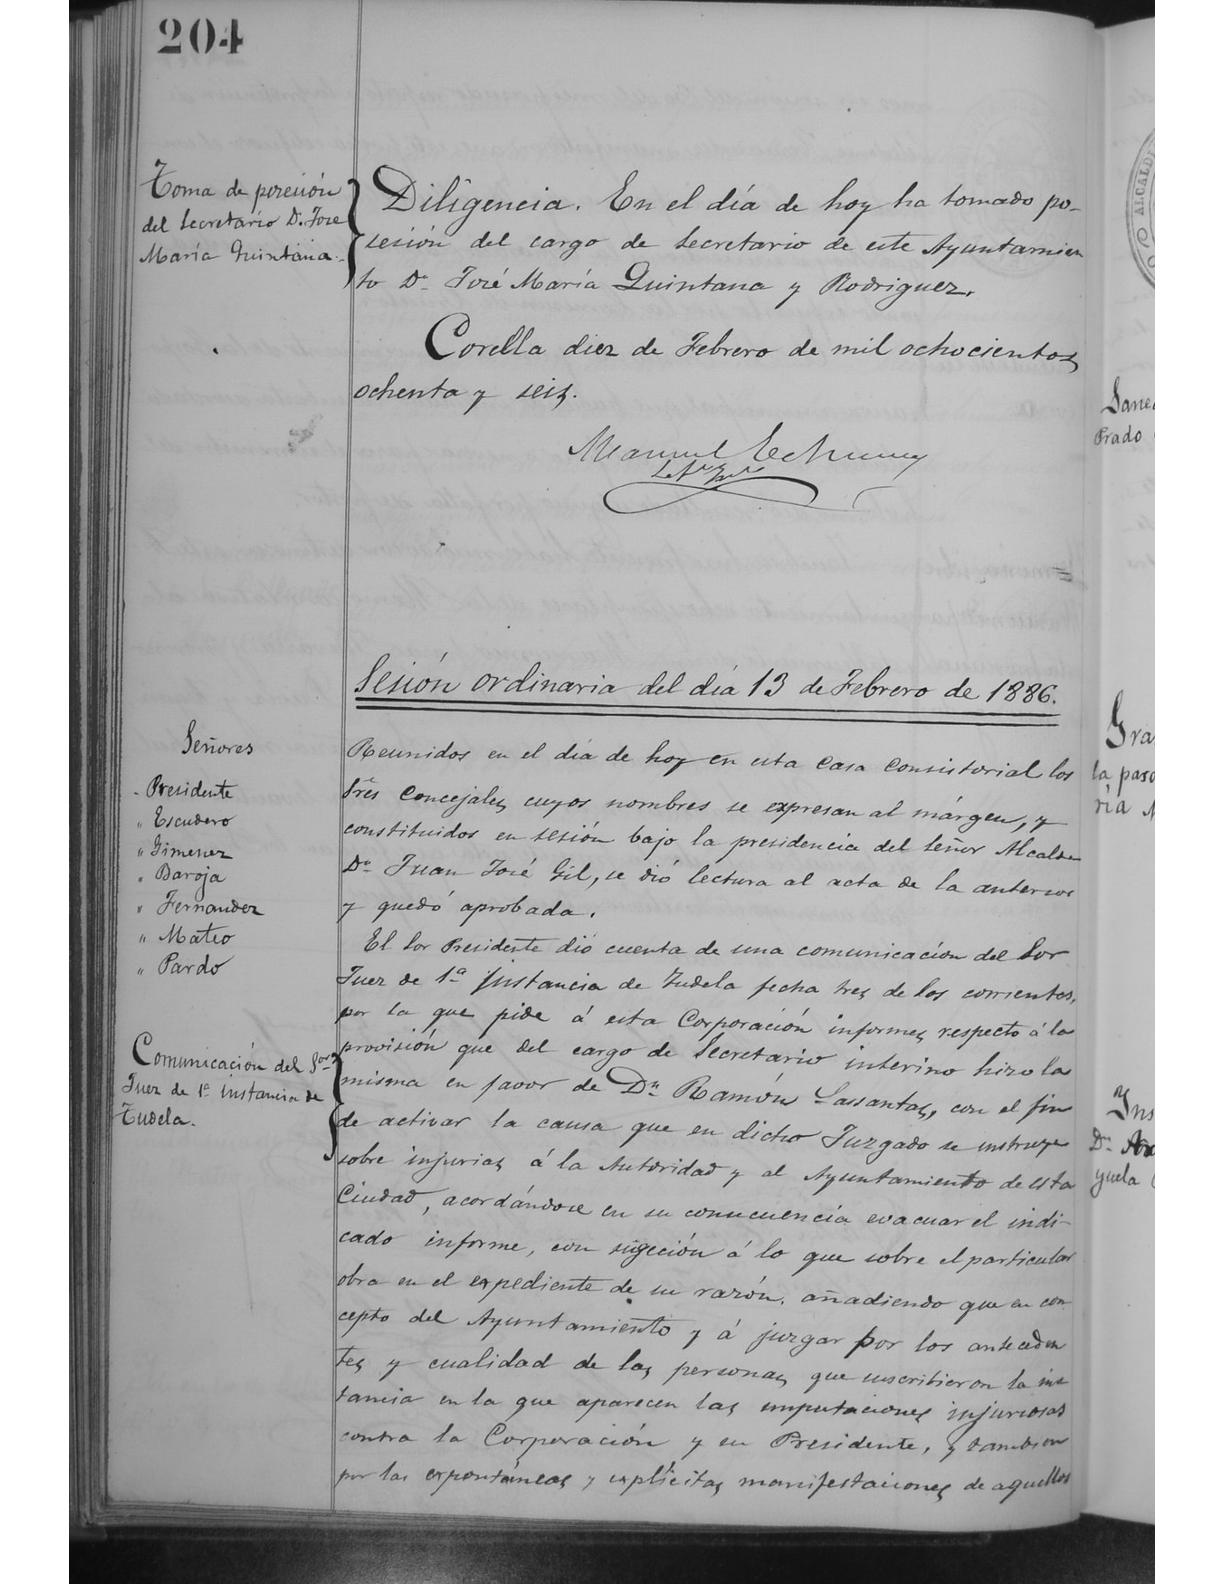 204
Toma de posesión
del Secretario Dn. Jose
María Quintana.
Diligencia. En el día de hoy ha tomado po-
sesión del cargo de Secretario de este Ayuntamien
to Dn. José María Quintana y Rodriguez.
Corella diez de Febrero de mil ochocientos
ochenta y seis.
Manuel
Sesión ordinaria del día 13 de Febrero de 1886.
Señores
Presidente
" Escudero
" Gimenez
" Baroja
" Fernandez
" Mateo
" Pardo
Reunidos en el día de hoy en esta Casa Consistorial los
Sres Concejales cuyos nombres se expresan al márgen, y
constituidos en sesión bajo la presidencia del Señor Alcalde
Dn. Juan José Gil, se dió lectura al acta de la anterior
y quedó aprobada.
Comunicación del Sor.
Juez de 1ª instancia de
Tudela.
El Sor Presidente dió cuenta de una comunicación del Sor
Juez de 1ª Instancia de Tudela fecha tres de los corrientes,
por la que pide á esta Corporación informes respecto á la
provisión que del cargo de Secretario interino hizo la
misma en favor de Dn. Ramón Lassantas, con el fin
de activar la causa que en dicho Juzgado se instruye
sobre injurias á la Autoridad y al Ayuntamiento de esta
Ciudad, acordándose en su consecuencia evacuar el indi-
cado informe, con sugeción á lo que sobre el particular
obra en el expediente de su razón, añadiendo que en con
cepto del Ayuntamiento y á juzgar por los anteceden
tes y cualidad de las personas que suscribieron la ins
tancia en la que aparecen las imputaciones injuriosas
contra la Corporación y su Presidente, y tambien
por las expontáneas y explícitas manifestaciones de aquellos
Prado
Gra
la paro
ría M
Ins
Dn.
yuela
ALCALD